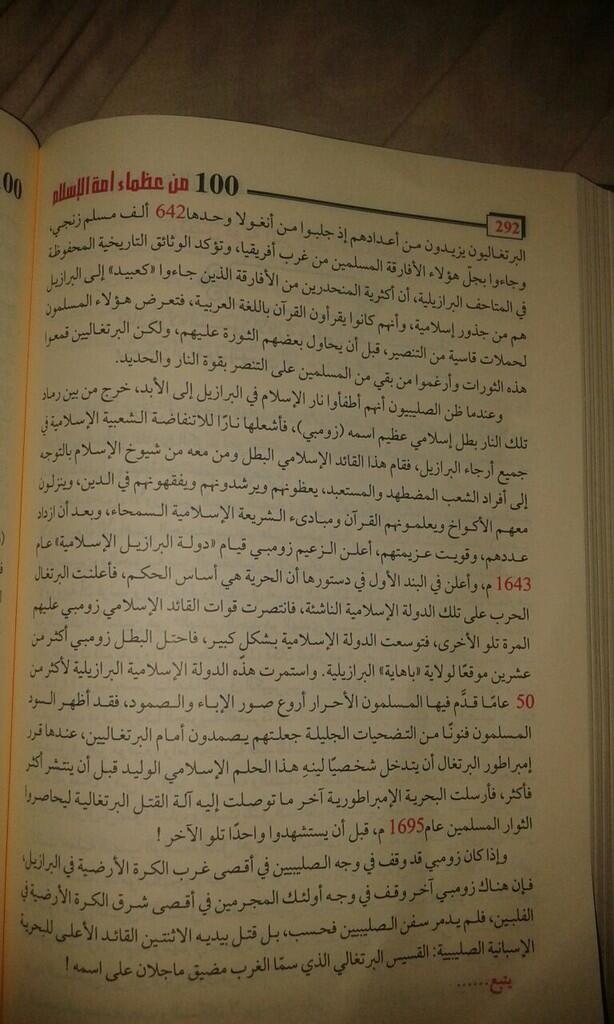 100 من عظماء أمة الإسلام
292
البرتغاليون يزيدون من أعدادهم إذ جلبوا من أنغولا وحدها 642 ألف مسلم زنجي،
وجاءوا بجلّ هؤلاء الأفارقة المسلمين من غرب أفريقيا، وتؤكد الوثائق التاريخية المحفوظة
في المتاحف البرازيلية، أن أكثرية المنحدرين من الأفارقة الذين جاءوا «كعبيد» إلى البرازيل
هم من جذور إسلامية، وأنهم كانوا يقرأون القرآن باللغة العربية، فتعرض هؤلاء المسلمون
لحملات قاسية من التنصير، قبل أن يحاول بعضهم الثورة عليهم، ولكن البرتغاليين قمعوا
هذه الثورات وأرغموا من بقي من المسلمين على التنصر بقوة النار والحديد.
وعندما ظن الصليبيون أنهم أطفأوا نار الإسلام في البرازيل إلى الأبد، خرج من بين رماد
تلك النار بطل إسلامي عظيم اسمه (زومبي)، فأشعلها نارًا للانتفاضة الشعبية الإسلامية في
جميع أرجاء البرازيل، فقام هذا القائد الإسلامي البطل ومن معه من شيوخ الإسلام بالتوجه
إلى أفراد الشعب المضطهد والمستعبد، يعظونهم ويرشدونهم ويفقهونهم في الدين، وينزلون
معهم الأكواخ ويعلمونهم القرآن ومبادىء الشريعة الإسلامية السمحاء، وبعد أن ازداد
عددهم، وقويت عزيمتهم، أعلن الزعيم زومبي قيام «دولة البرازيل الإسلامية» عام
1643 م، وأعلن في البند الأول في دستورها أن الحرية هي أساس الحكم، فأعلنت البرتغال
الحرب على تلك الدولة الإسلامية الناشئة، فانتصرت قوات القائد الإسلامي زومبي عليهم
المرة تلو الأخرى، فتوسعت الدولة الإسلامية بشكل كبير، فاحتل البطل زومبي أكثر من
عشرين موقعًا لولاية «باهاية» البرازيلية. واستمرت هذه الدولة الإسلامية البرازيلية لأكثر من
50 عامًا قدَّم فيها المسلمون الأحرار أروع صور الإباء والصمود، فقد أظهر السود
المسلمون فنونًا من التضحيات الجليلة جعلتهم يصمدون أمام البرتغاليين، عندها قرر
إمبراطور البرتغال أن يتدخل شخصيًا لينهِ هذا الحلم الإسلامي الوليد قبل أن ينتشر أكثر
فأكثر، فأرسلت البحرية الإمبراطورية آخر ما توصلت إليه آلة القتل البرتغالية ليحاصروا
الثوار المسلمين عام 1695 م، قبل أن يستشهدوا واحدًا تلو الآخر !
وإذا كان زومبي قد وقف في وجه الصليبيين في أقصى غرب الكرة الأرضية في البرازيل،
فإن هناك زومبي آخر وقف في وجه أولئك المجرمين في أقصى شرق الكرة الأرضية في
الفلبين، فلم يدمر سفن الصليبيين فحسب، بل قتل بيديه الاثنتين القائد الأعلى للبحرية
الإسبانية الصليبية: القسيس البرتغالي الذي سمّا الغرب مضيق ماجلان على اسمه !
يتبع......